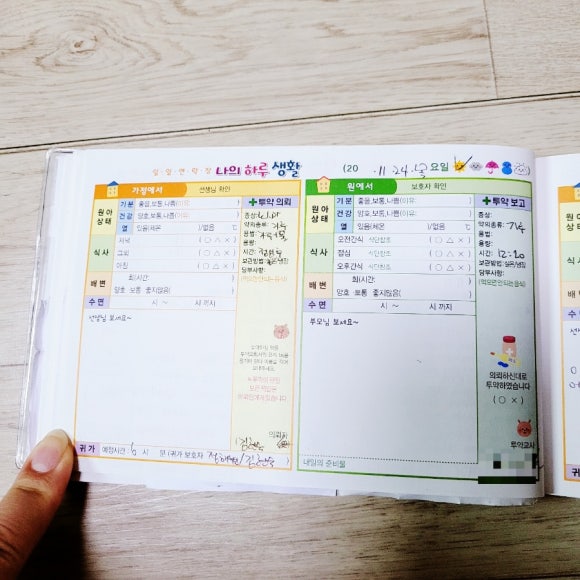 일일연락장 나의 하루 생활 (20 .11.24. 요일
가정에서 선생님 확인
원아상태 기분 좋음,보통,나쁨(이유:
건강 양호,보통,나쁨(이유:
열 있음(체온 )/없음 ℃
식사 저녁 (○ △ ×)
그외 (○ △ ×)
아침 (○ △ ×)
배변 회(시간:
양호·보통·좋지않음(
수면 시 ~ 시 까지
선생님 보세요~
투약 의뢰
증상:
약의종류: 가루
용법:
용량:
시간:
보관방법: 실온/냉장
당부사항:
의뢰자
귀가 예정시간: 6 시 분 (귀가 보호자 )
원에서 보호자 확인
원아상태 기분 좋음,보통,나쁨(이유:
건강 양호,보통,나쁨(이유:
열 있음(체온 )/없음 ℃
식사 오전간식 식단참조 (○ △ ×)
점심 식단참조 (○ △ ×)
오후간식 식단참조 (○ △ ×)
배변 회(시간:
양호·보통·좋지않음(
수면 시 ~ 시 까지
부모님 보세요~
내일의 준비물
투약 보고
증상:
약의종류: 가루
용법:
용량:
시간: 12:20
보관방법: 실온/냉장
당부사항:
(먹으면 안되는음식)
의뢰하신대로
투약하였습니다
(○ ×)
투약교사
귀